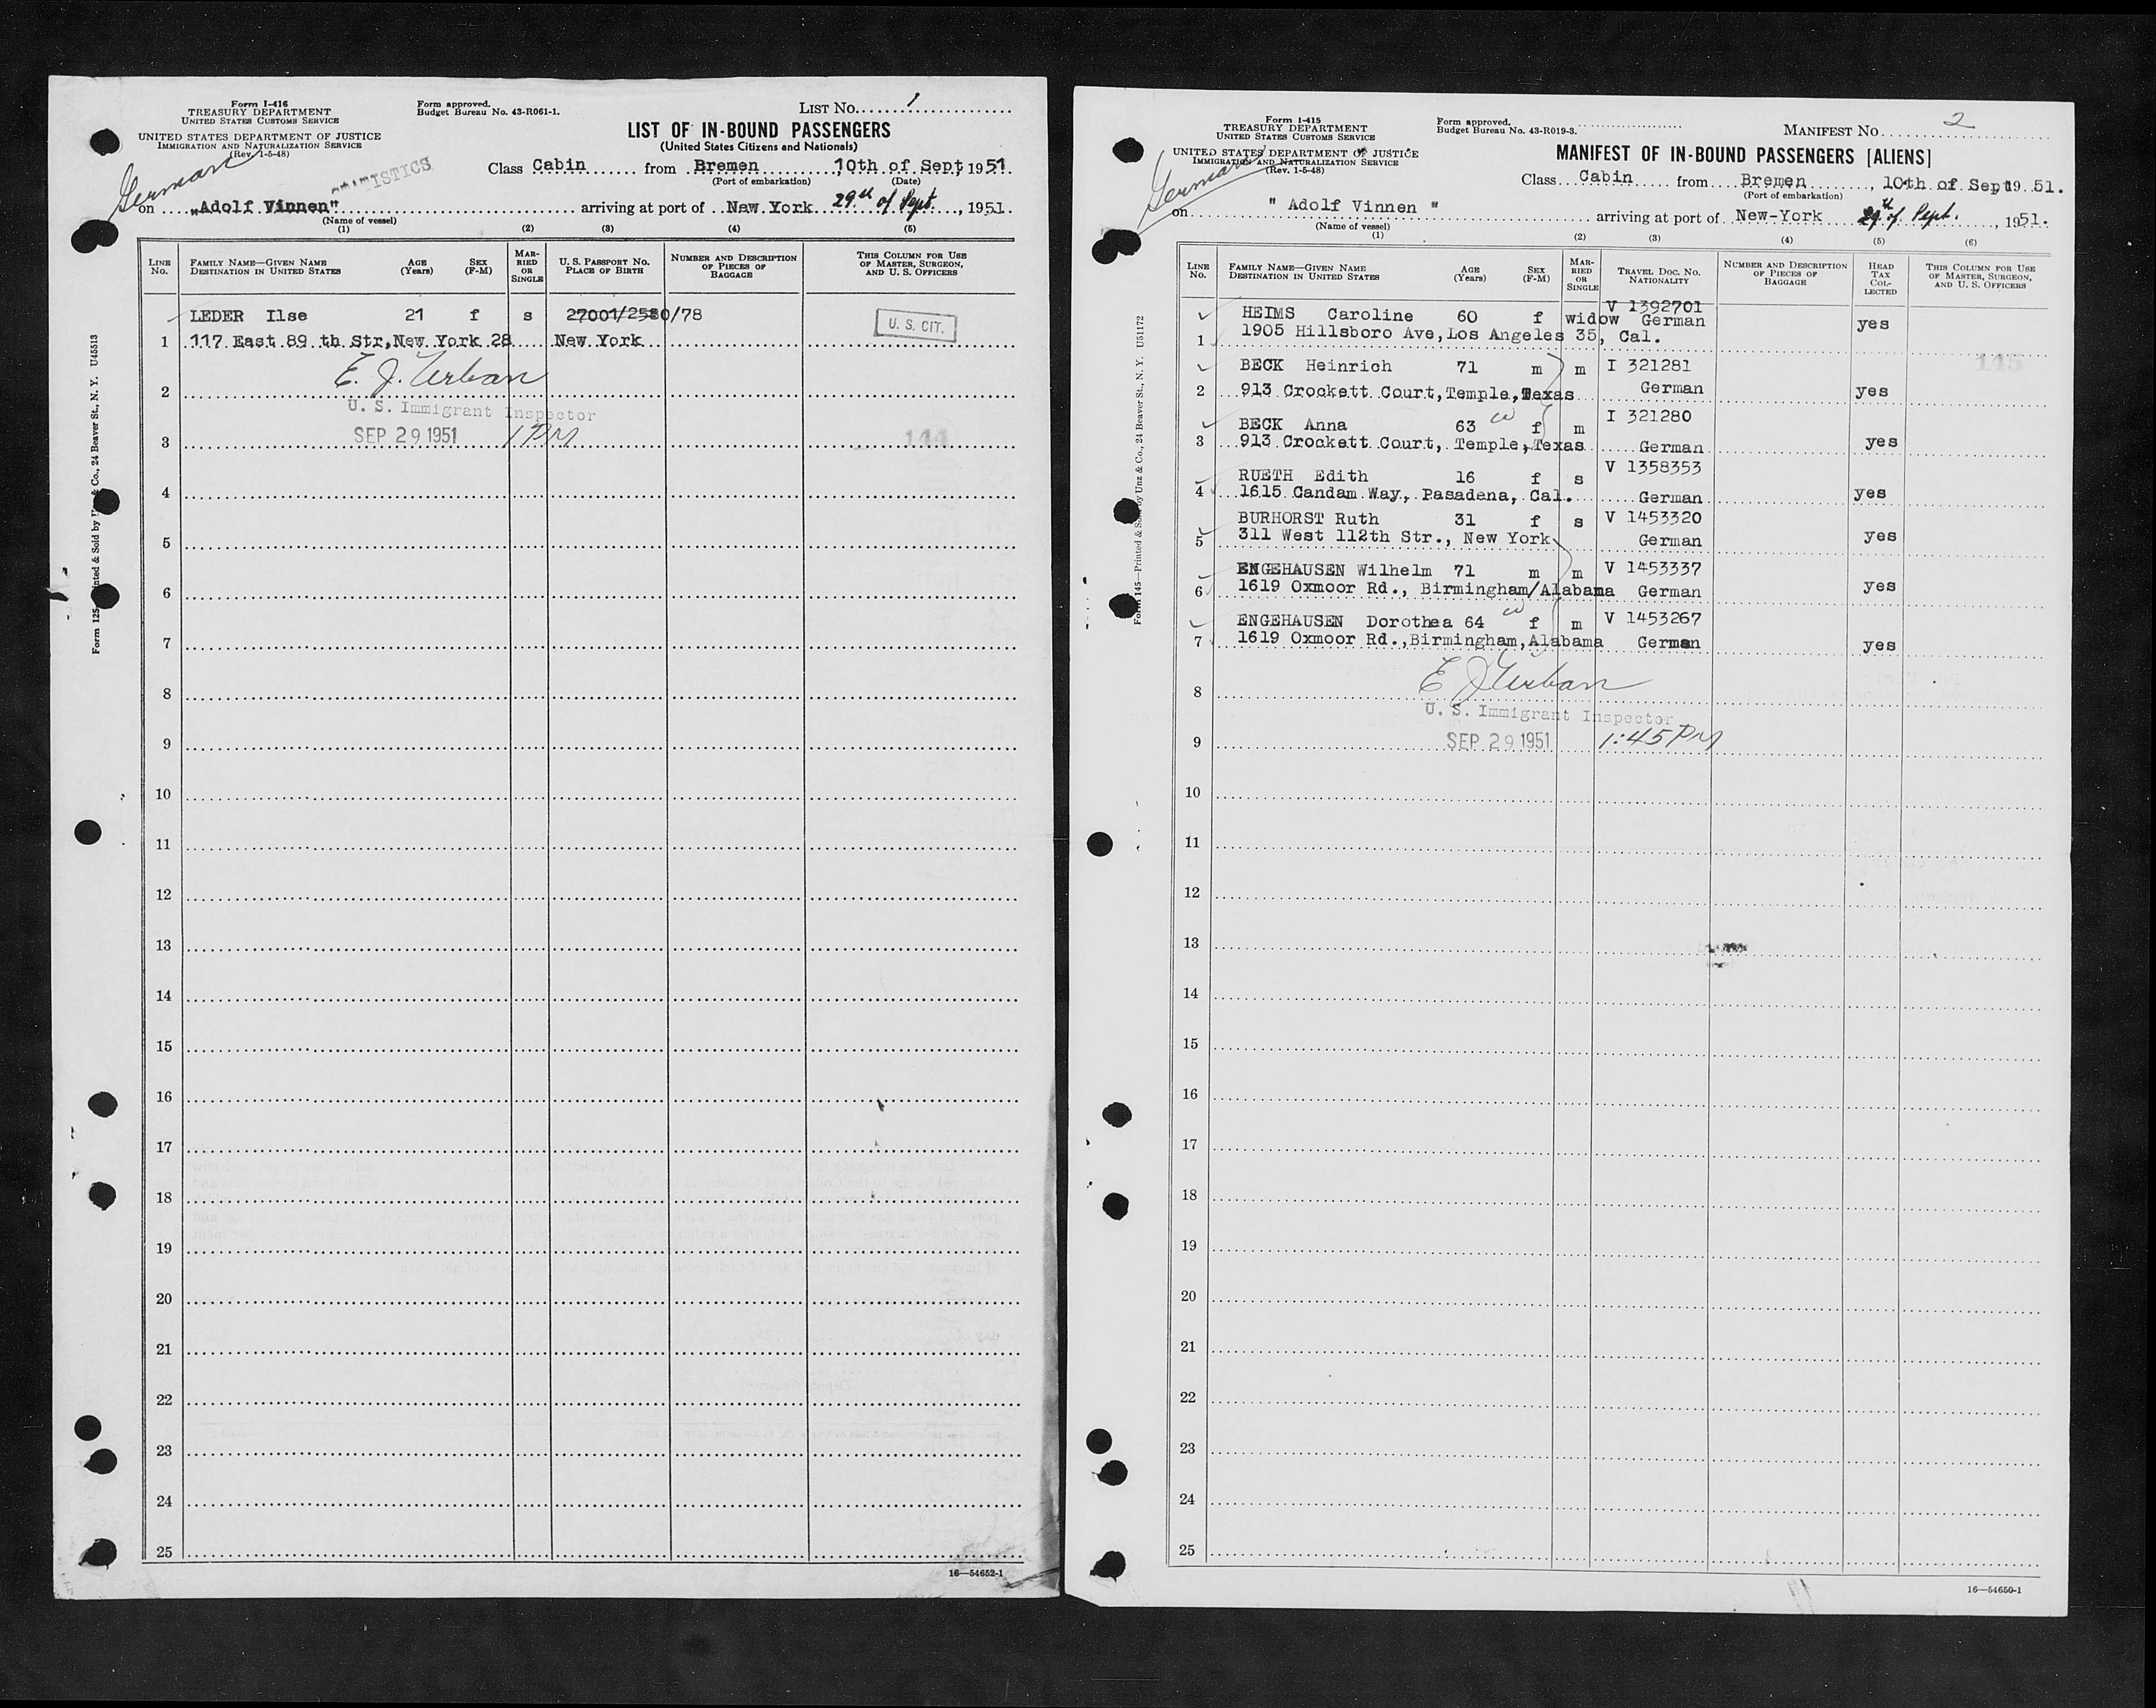 Form I-416
TREASURY DEPARTMENT
UNITED STATES CUSTOMS SERVICE
UNITED STATES DEPARTMENT OF JUSTICE
IMMIGRATION AND NATURALIZATION SERVICE
(Rev. 1-5-48)
German
STATISTICS
Form approved.
Budget Bureau No. 43-R061-1.
LIST No. 1
LIST OF IN-BOUND PASSENGERS
(United States Citizens and Nationals)
Class Cabin from Bremen, 10th of Sept, 1951.
(Port of embarkation) (Date)
on "Adolf Vinnen" arriving at port of New York 29th of Sept., 1951.
(Name of vessel)
(1) (2) (3) (4) (5)
LINE No. FAMILY NAME—GIVEN NAME DESTINATION IN UNITED STATES AGE (Years) SEX (F-M) MARRIED OR SINGLE U. S. PASSPORT NO. PLACE OF BIRTH NUMBER AND DESCRIPTION OF PIECES OF BAGGAGE THIS COLUMN FOR USE OF MASTER, SURGEON, AND U. S. OFFICERS
LEDER Ilse 21 f s 27001/2580/78 U. S. CIT.
1 117 East 89 th Str, New York 28 New York
E. J. Urban
2
U. S. Immigrant Inspector
SEP 29 1951 1 PM
3 144
4
5
6
7
8
9
10
11
12
13
14
15
16
17
18
19
20
21
22
23
24
25
16—54652-1
Form I-415
TREASURY DEPARTMENT
UNITED STATES CUSTOMS SERVICE
UNITED STATES DEPARTMENT OF JUSTICE
IMMIGRATION AND NATURALIZATION SERVICE
(Rev. 1-5-48)
German
Form approved.
Budget Bureau No. 43-R019-3.
MANIFEST No. 2
MANIFEST OF IN-BOUND PASSENGERS [ALIENS]
Class Cabin from Bremen, 10th of Sept 19 51.
(Port of embarkation)
on " Adolf Vinnen " arriving at port of New-York 29th of Sept., 1951.
(Name of vessel)
(1) (2) (3) (4) (5) (6)
LINE No. FAMILY NAME—GIVEN NAME DESTINATION IN UNITED STATES AGE (Years) SEX (F-M) MARRIED OR SINGLE TRAVEL DOC. NO. NATIONALITY NUMBER AND DESCRIPTION OF PIECES OF BAGGAGE HEAD TAX COLLECTED THIS COLUMN FOR USE OF MASTER, SURGEON, AND U. S. OFFICERS
V 1392701
HEIMS Caroline 60 f widow German yes
1 1905 Hillsboro Ave, Los Angeles 35, Cal.
BECK Heinrich 71 m m I 321281 145
2 913 Crockett Court, Temple, Texas German yes
BECK Anna 63 w f m I 321280
3 913 Crockett Court, Temple, Texas German yes
RUETH Edith 16 f s V 1358353
4 1615 Candam Way, Pasadena, Cal. German yes
BURHORST Ruth 31 f s V 1453320
5 311 West 112th Str., New York German yes
ENGEHAUSEN Wilhelm 71 m m V 1453337
6 1619 Oxmoor Rd., Birmingham/Alabama German yes
ENGEHAUSEN Dorothea 64 w f m V 1453267
7 1619 Oxmoor Rd., Birmingham, Alabama German yes
E J Urban
8
U. S. Immigrant Inspector
9 SEP 29 1951 1:45 PM
10
11
12
13
14
15
16
17
18
19
20
21
22
23
24
25
16—54650-1